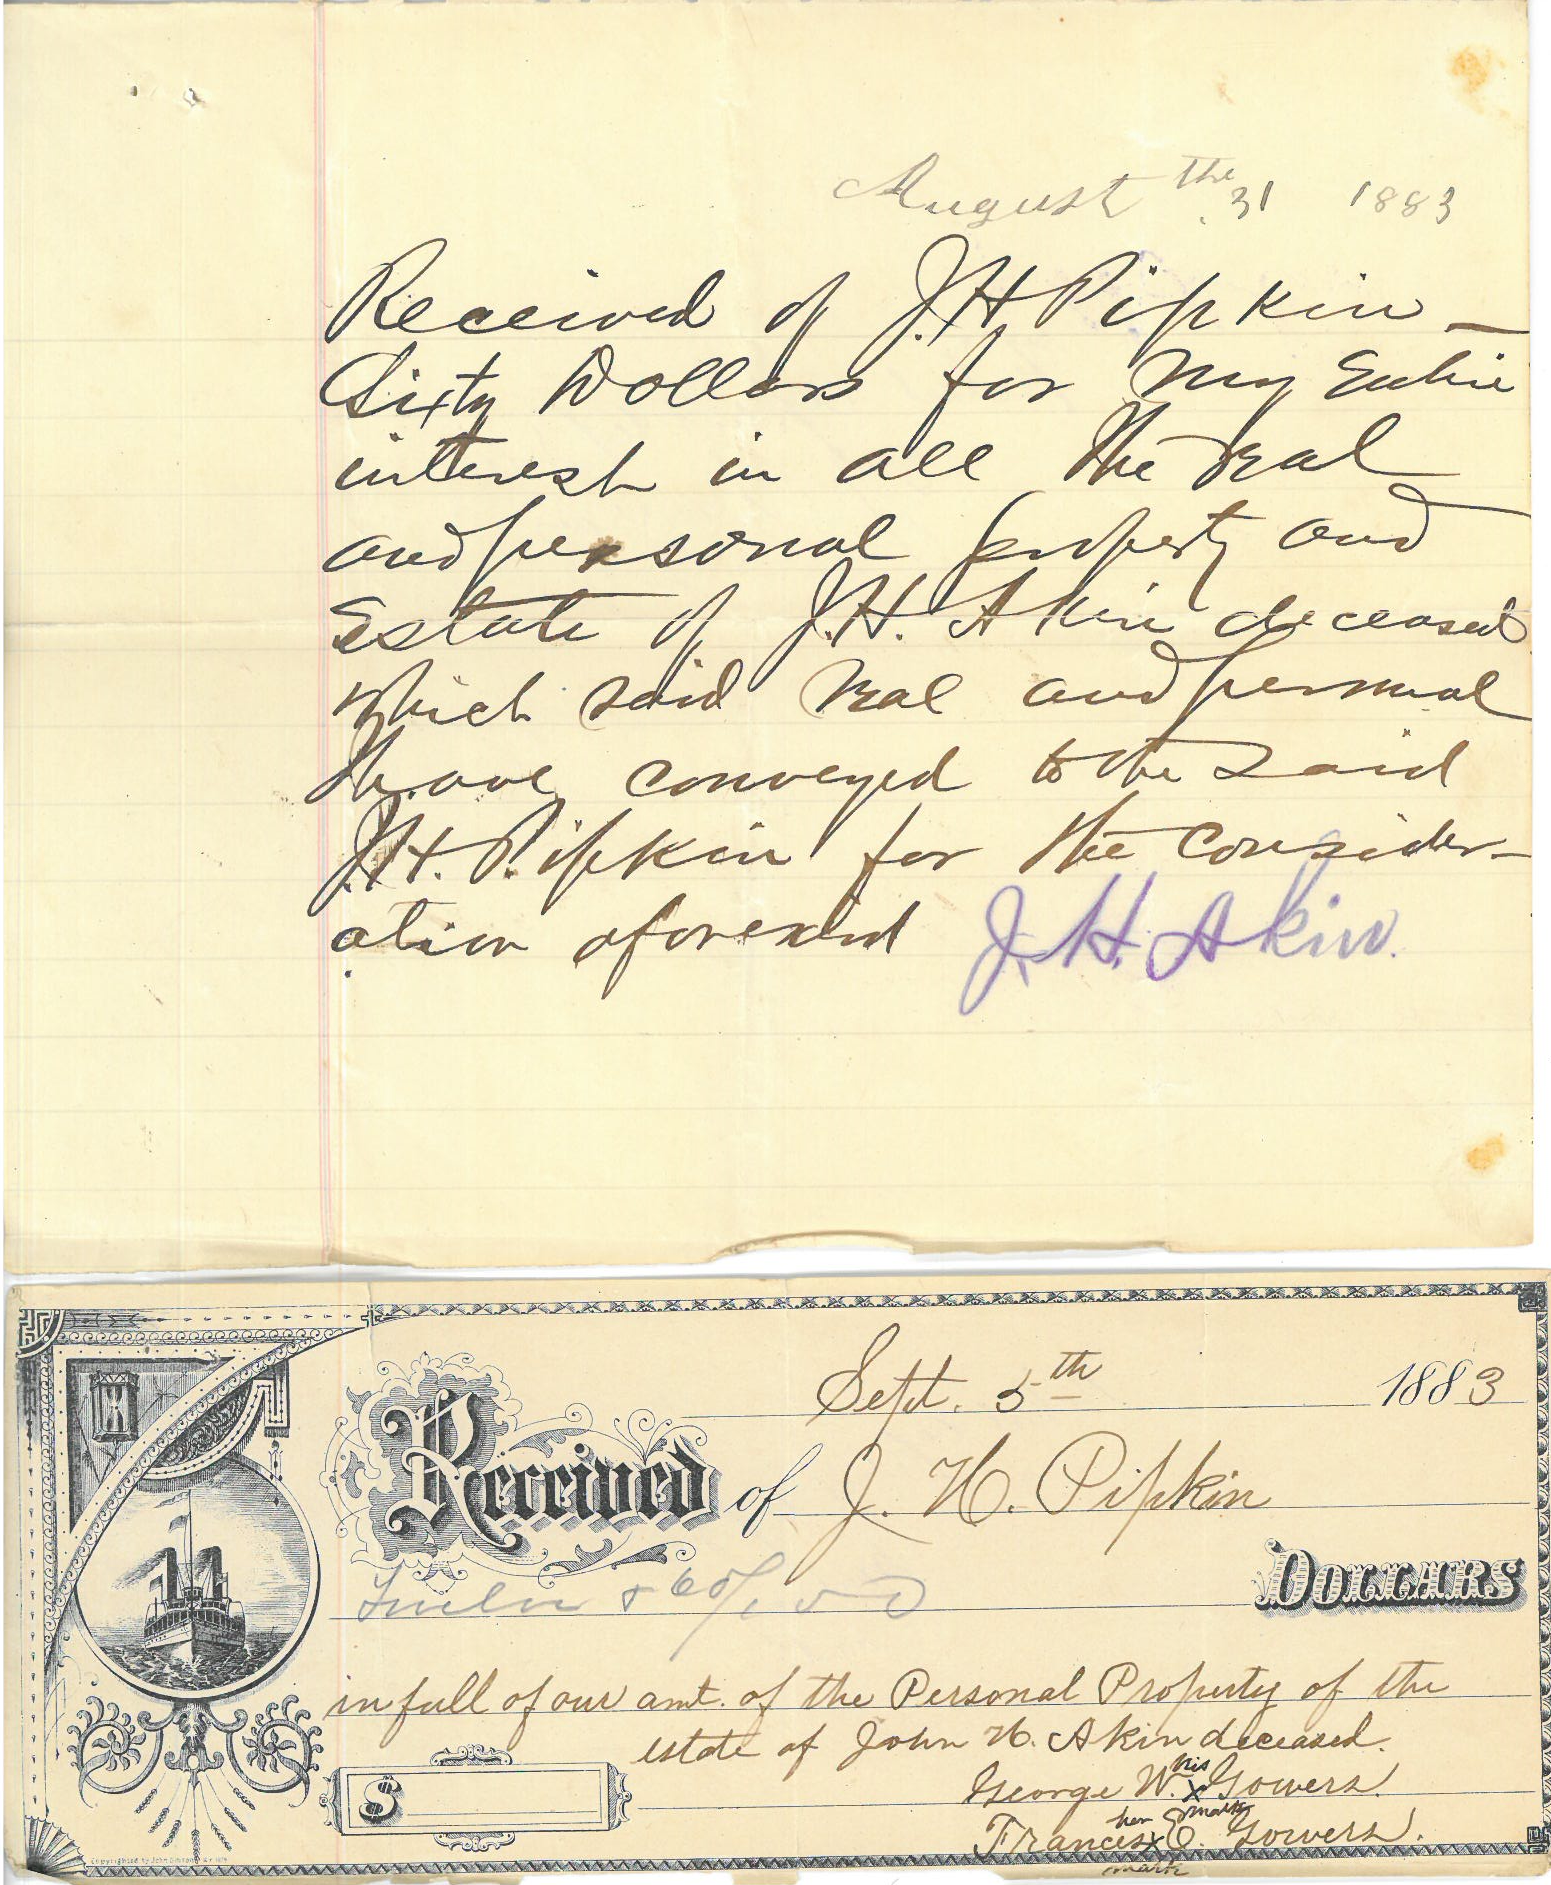 August the 31 1883
Received of J.H Pipkin
Sixty Dollars for my Entire
interest in all the real
and personal property and
Estate of J.H. Akin deceased
which said real and personal
have conveyed to the said
J.H. Pipkin for the consider-
ation aforesaid J. H. Akin.
Sept. 5th 1883
Received of J. H. Pipkin
Twelve & 60/100 DOLLARS
in full of our amt. of the Personal Property of the
estate of John H. Akin deceased.
$
George W. his x mark Gowers.
Frances her x mark C. Gowers.